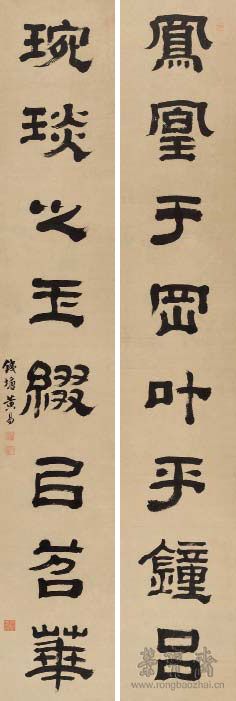 鳳凰于岡叶乎鐘呂
琬琰之玉綴以苕華
錢塘黃易
榮寶齋
www.rongbaozhai.cn